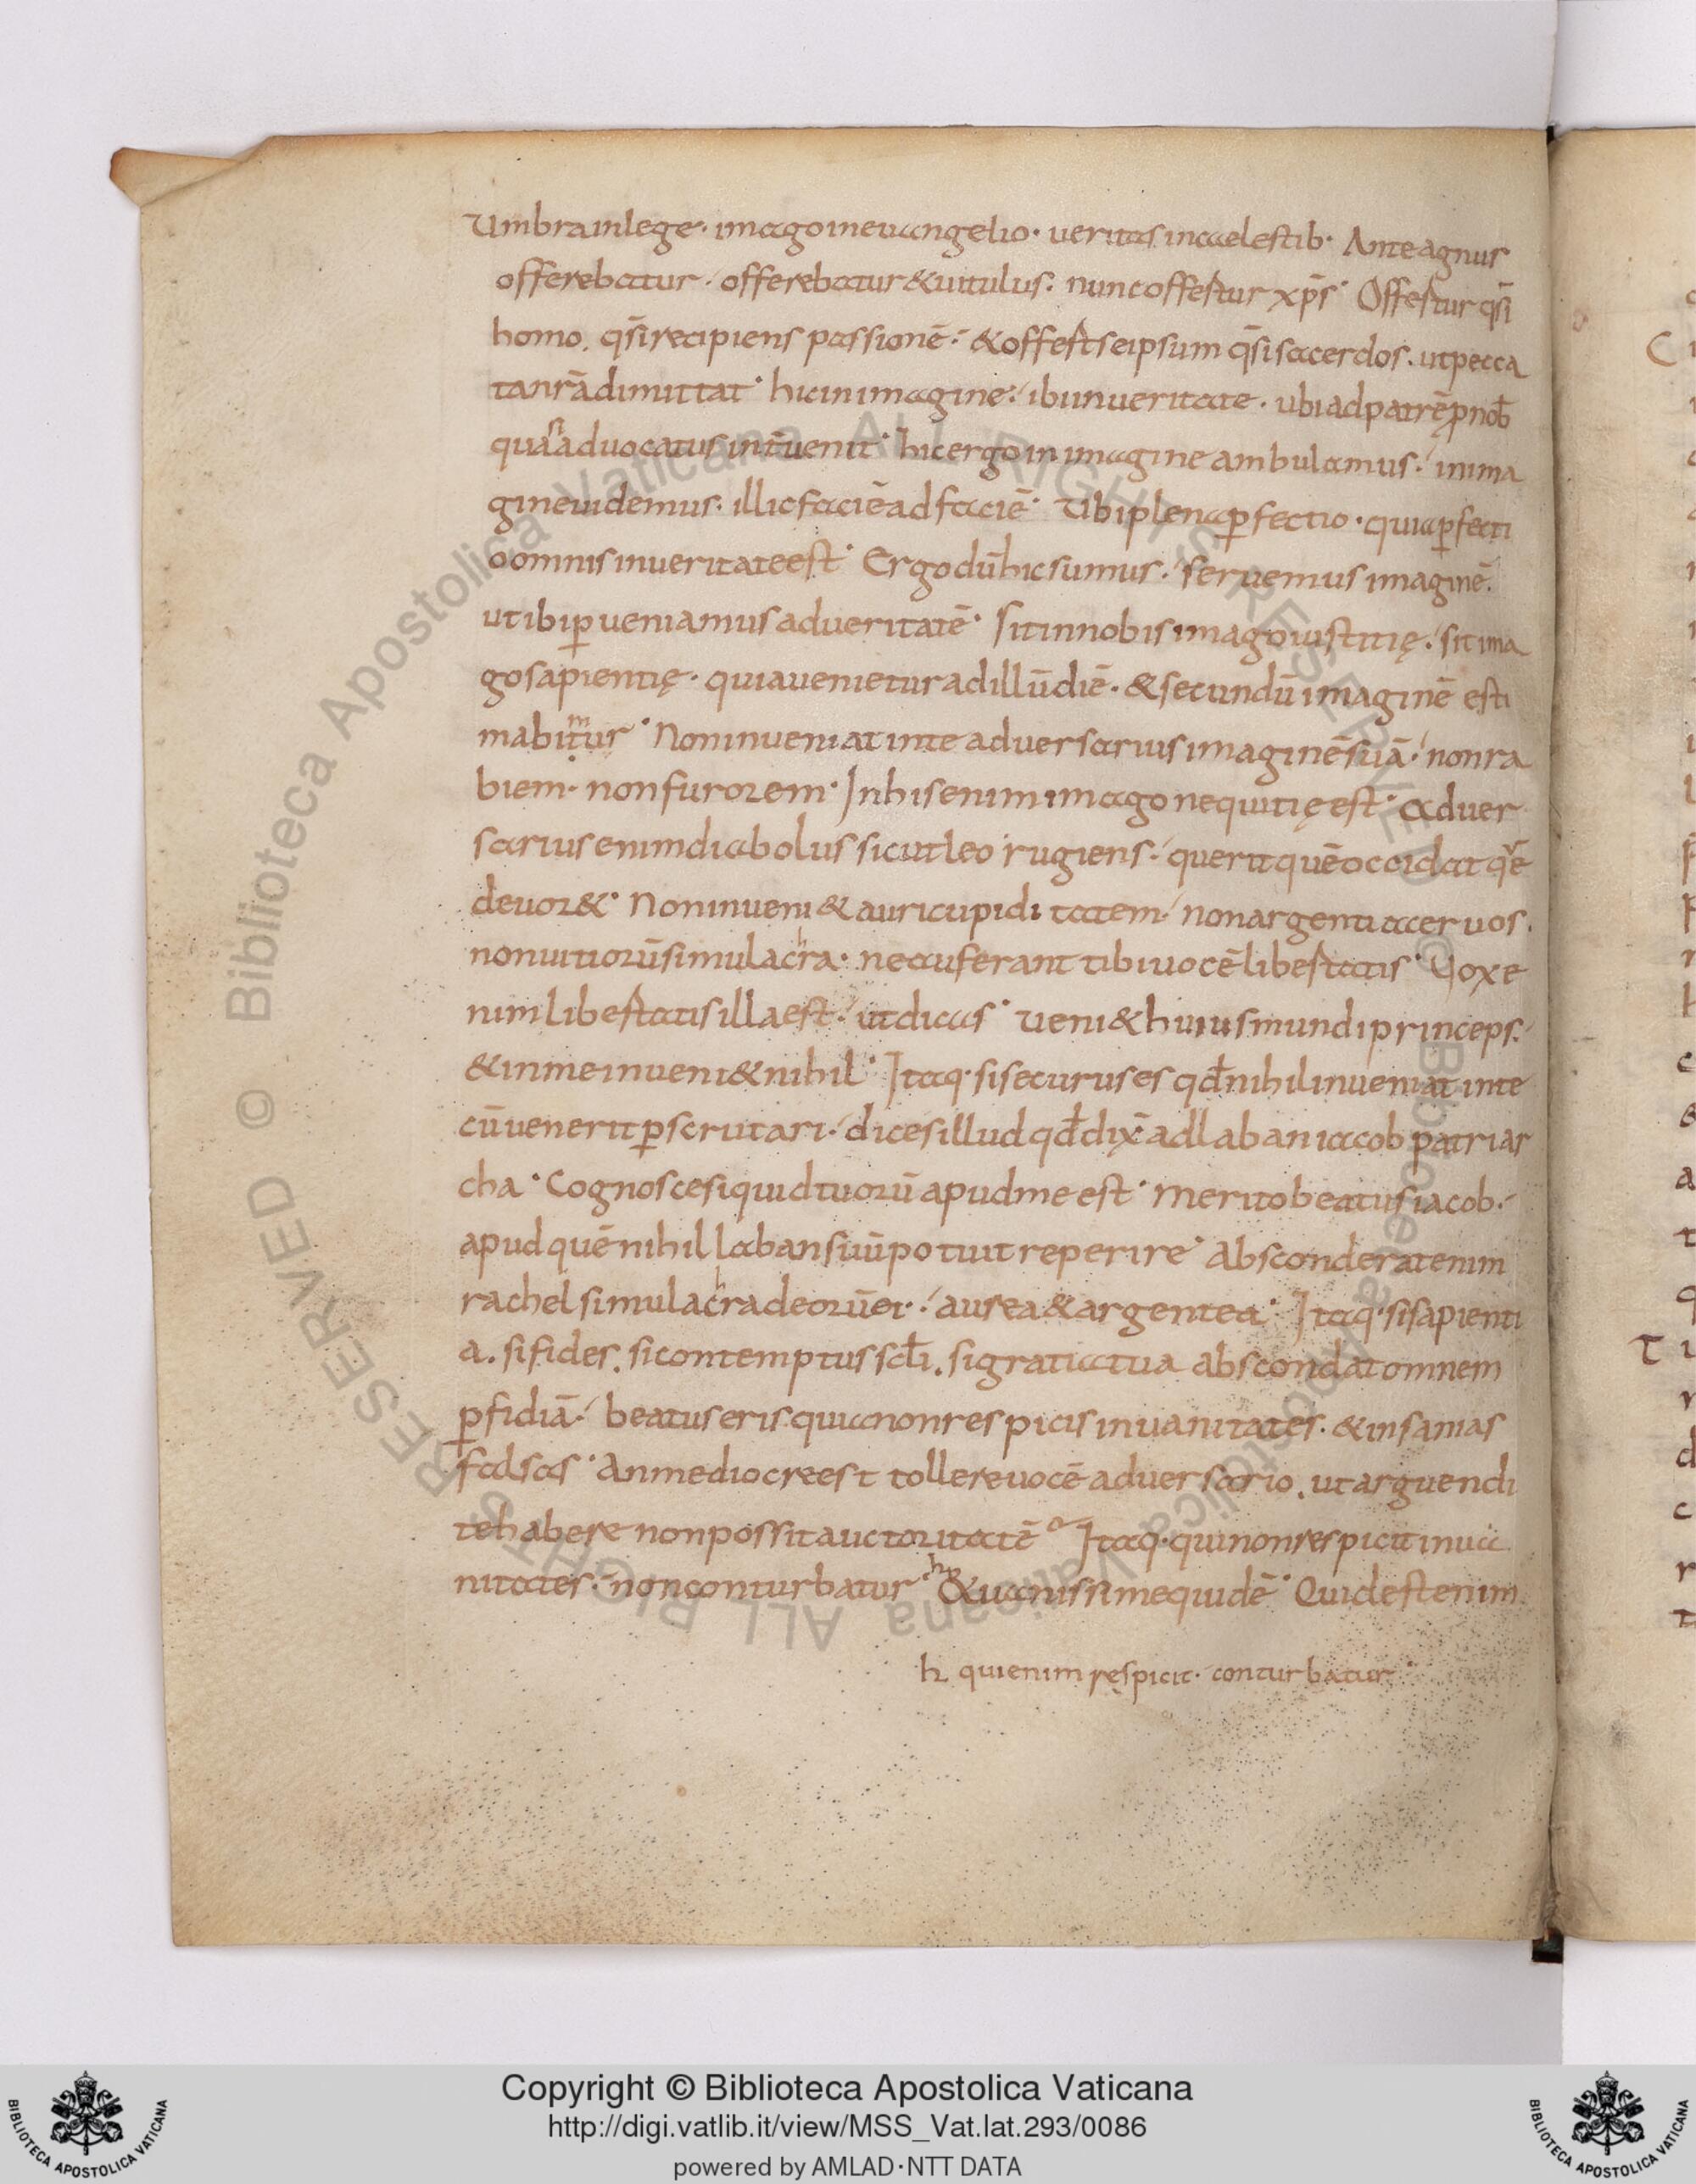 Umbra inlege· imago ineuangelio· ueritas incaelestib· Ante agnus
offerebatur· offerebatur & uitulus: nunc offertur xp̄s· Offertur qs̄i
homo. qs̄i recipiens passionē: & offert seipsum qs̄i sacerdos. ut pecca
ta nr̄a dimittat· hic in imagine: ibi inueritate· ubi adpatrē p nob̄
quasi aduocatus int̄uenit· hic ergo in imagine ambulamus: in ima
gine uidemus· illic faciē ad faciē· Vbi plena pfectio· quia pfecti
o omnis inueritate est· Ergo dū hic sumus: seruemus imaginē.
ut ibi pueniamus ad ueritatē· Sit in nobis imago iustitię: sit ima
go sapientię· quia uenietur ad illū diē· & secundū imaginē esti
mabimur· Non inueniat inte aduersarius imaginē suā· non ra
biem· non furorem· In his enim imago nequitię est· aduer
sarius enim diabolus sicut leo rugiens· querit quē occidat qē
deuor&· Non inueni& auri cupiditatem· non argenti aceruos.
non uitiorū simulachra· ne auferant tibi uocē libertatis· Vox e
nim libertatis illa est· ut dicas· ueni& huius mundi princeps:
& in me inueni& nihil· Itaq· si securus es qd̄ nihil inueniat inte
cū uenerit pscrutari· dices illud qd̄ dix̄ ad laban iacob patriar
cha· Cognosce si quid tuorū apud me est· Merito beatus iacob·
apud quē nihil laban suū potuit reperire· Absconderat enim
rachel simulachra deorū ei·: aurea & argentea· Itaq· si sapienti
a. si fides. si contemptus scl̄i. si gratia tua abscondat omnem
pfidiā· beatus eris· quia non respicis inuanitates· & insanias
falsas· An mediocre est tollere uocē aduersario. ut arguendi
te habere non possit auctoritatē· Itaq· qui non respicit inua
nitates· non conturbatur· hp & uanissime quidē· Quid est enim
h qui enim respicit· conturbatur·
C
T
Copyright © Biblioteca Apostolica Vaticana
http://digi.vatlib.it/view/MSS_Vat.lat.293/0086
powered by AMLAD·NTT DATA
BIBLIOTECA APOSTOLICA VATICANA
BIBLIOTECA APOSTOLICA VATICANA
© Biblioteca Apostolica Vaticana ALL RIGHTS RESERVED
© Biblioteca Apostolica Vaticana ALL RIGHTS RESERVED